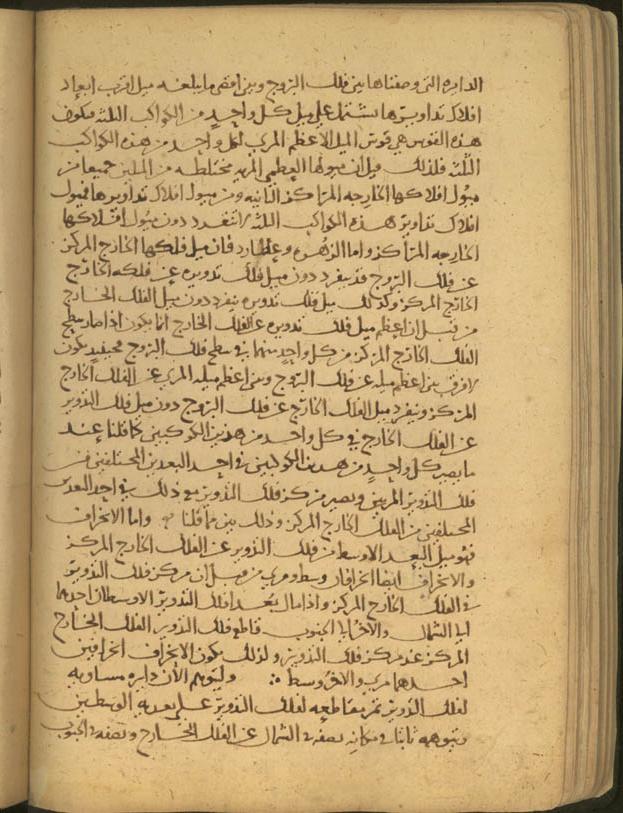 الدايره التى وصفناها بين فلك البروج وبين اقصى ما يبلغه ميل اقرب ابعاد
افلاك تداويرها يشتمل على ميل كل واحد من الكواكب الثلثه فتكون
هذه القوس هى قوس الميل الاعظم المرى لكل واحد من هذه الكواكب
الثلثه فلذلك قيل ان ميولها العظمى المريه مختلطه من الميلين جميعا من
ميول افلاكها الخارجه المراكز الثانيه ومن ميول افلاك تداويرها فميول
افلاك تداوير هذه الكواكب الثلثه لا تتفرد دون ميول افلاكها
الخارجه المراكز واما الزهره وعطارد فان ميل فلكها الخارج المركز
عن فلك البروج قد ينفرد دون ميل فلك تدويره عن فلكه الخارج
الخارج المركز وكذلك ميل فلك تدويره ينفرد دون ميل الفلك الخارج
من قبل ان اعظم ميل فلك تدويره عن الفلك الخارج انما يكون اذا صار سطح
الفلك الخارج المركز من كل واحد منهما فى سطح فلك البروج فحينئذ يكون
لا فرق بين اعظم ميله عن فلك البروج وبين اعظم ميله المرى عن الفلك الخارج
المركز وينفرد ميل الفلك الخارج عن فلك البروج دون ميل فلك التدوير
عن الفلك الخارج فى كل واحد من هذين الكوكبين كما قلنا عند
ما يصير كل واحد من هذين الكوكبين فى احد البعدين المختلفين من
فلك التدوير المريين ويصير مركز فلك التدوير مع ذلك فى احد البعدين
المختلفين من الفلك الخارج المركز وذلك بين مما قلنا واما الانحراف
فهو ميل البعد الاوسط من فلك التدوير عن الفلك الخارج المركز
والانحراف ايضا انحرافان وسط ومرى من قبل ان مركز فلك التدوير
فى الفلك الخارج المركز واذا مال بعدا فلك التدوير الاوسطان احدهما
الى الشمال والاخر الى الجنوب قاطع فلك التدوير الفلك الخارج
المركز عند مركز فلك التدوير ولذلك يكون الانحراف انحرافين
احدهما مرى والاخر وسط ولنتوهم الان دايره مساويه
لفلك التدوير تمر مقاطعه لفلك التدوير على بعديه الوسطين
ونتوهمه ثابتا فى مكانه نصفه فى الشمال عن الفلك الخارج ونصفه فى الجنوب